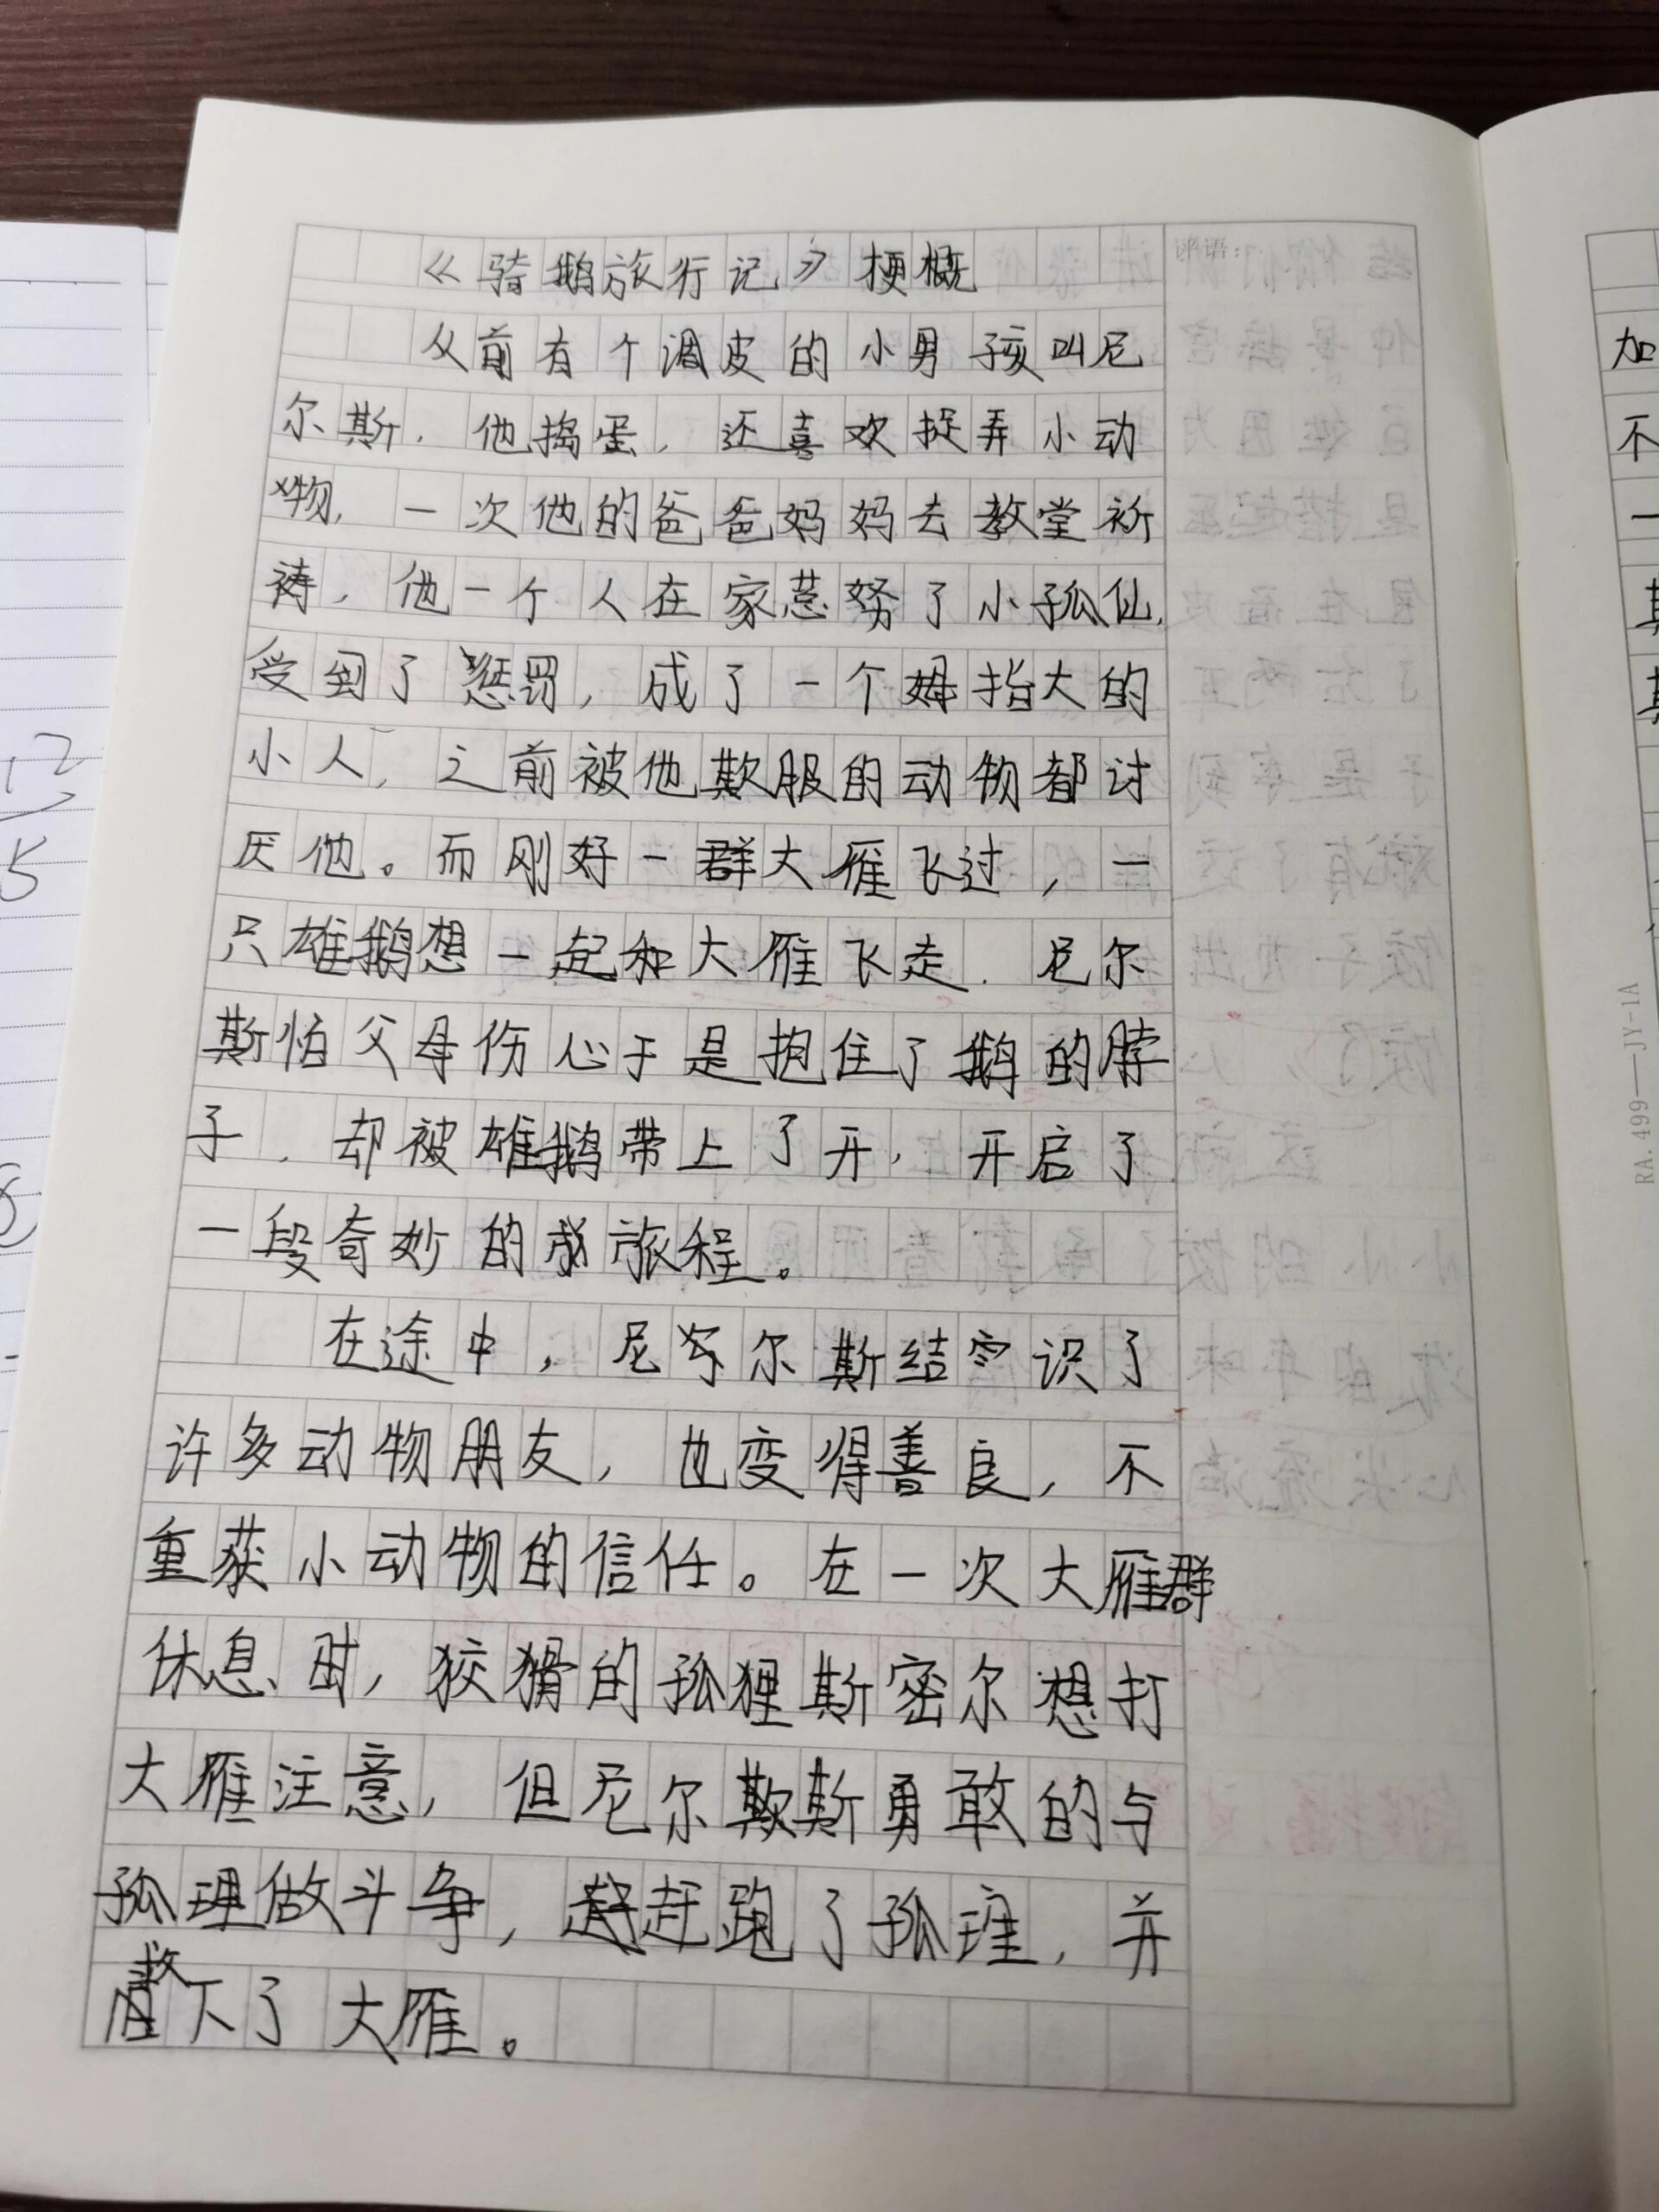 《骑鹅旅行记》梗概
评语:
从前有个调皮的小男孩叫尼
尔斯，他捣蛋，还喜欢捉弄小动
物，一次他的爸爸妈妈去教堂祈
祷，他一个人在家惹努了小孤仙，
受到了惩罚，成了一个姆指大的
小人，之前被他欺服的动物都讨
厌他。而刚好一群大雁飞过，一
只雄鹅想一起和大雁飞走．尼尔
斯怕父母伤心于是抱住了鹅的脖
子，却被雄鹅带上了开，开启了
一段奇妙的旅程。
在途中，尼尔斯结识了
许多动物朋友，也变得善良，不
重获小动物的信任。在一次大雁群
休息时，狡猾的孤狸斯密尔想打
大雁注意，但尼尔斯勇敢的与
孤理做斗争，赶跑了孤理，并
救下了大雁。
加
不
一
RA.499——JY-1A
5